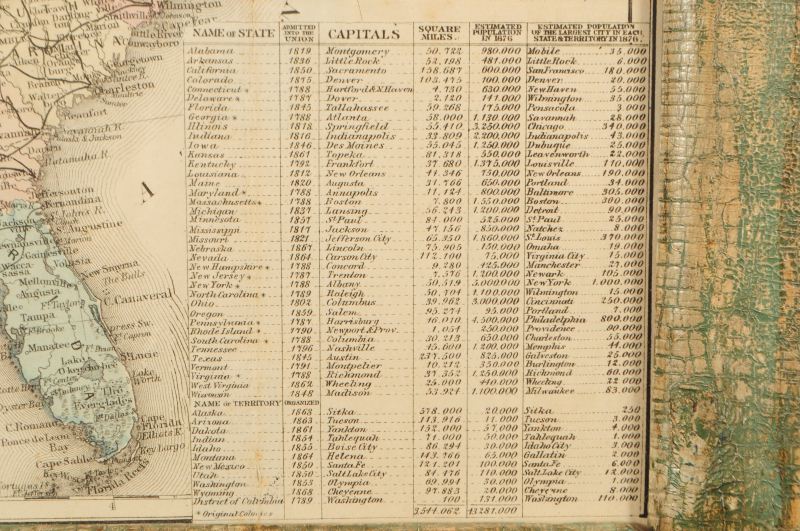 NAME OF STATE ADMITTED INTO THE UNION CAPITALS SQUARE MILES ESTIMATED POPULATION IN 1876 ESTIMATED POPULATION OF THE LARGEST CITY IN EACH STATE & TERRITORY IN 1876
Alabama 1819 Montgomery 50.722 980.000 Mobile 35.000
Arkansas 1836 Little Rock 52.198 481.000 Little Rock 6.000
California 1850 Sacramento 158.687 600.000 San Francisco 180.000
Colorado 1875 Denver 100.000 Denver 20.000
Connecticut * 1788 Hartford & N. Haven 4.730 630.000 New Haven 55.000
Delaware * 1787 Dover 2.120 141.000 Wilmington 35.000
Florida 1845 Tallahassee 59.268 175.000 Pensacola 3.000
Georgia * 1788 Atlanta 58.000 1.130.000 Savannah 28.000
Illinois 1818 Springfield 55.410 3.250.000 Chicago 340.000
Indiana 1816 Indianapolis 33.809 2.200.000 Indianapolis 43.000
Iowa 1846 Des Moines 55.045 1.250.000 Dubuque 25.000
Kansas 1861 Topeka 81.318 550.000 Leavenworth 22.000
Kentucky 1792 Frankfort 37.680 1.375.000 Louisville 110.000
Louisiana 1812 New Orleans 41.346 750.000 New Orleans 190.000
Maine 1820 Augusta 31.766 650.000 Portland 34.000
Maryland * 1788 Annapolis 11.124 800.000 Baltimore 305.000
Massachusetts * 1788 Boston 7.800 1.550.000 Boston 300.000
Michigan 1837 Lansing 56.243 1.200.000 Detroit 90.000
Minnesota 1857 St. Paul 84.000 525.000 St. Paul 25.000
Mississippi 1817 Jackson 47.156 850.000 Natchez 8.000
Missouri 1821 Jefferson City 65.350 1.860.000 St. Louis 370.000
Nebraska 1867 Lincoln 75.905 150.000 Omaha 19.000
Nevada 1864 Carson City 112.100 75.000 Virginia City 15.000
New Hampshire * 1788 Concord 9.280 425.000 Manchester 27.000
New Jersey * 1787 Trenton 7.576 1.200.000 Newark 105.000
New York * 1788 Albany 50.519 5.000.000 New York 1.000.000
North Carolina * 1789 Raleigh 50.704 1.100.000 Wilmington 15.000
Ohio 1802 Columbus 39.962 3.000.000 Cincinnati 250.000
Oregon 1859 Salem 95.274 95.000 Portland 7.000
Pennsylvania * 1787 Harrisburg 46.010 4.500.000 Philadelphia 800.000
Rhode Island * 1790 Newport & Prov. 1.051 250.000 Providence 90.000
South Carolina * 1788 Columbia 30.213 650.000 Charleston 55.000
Tennessee 1796 Nashville 45.600 1.200.000 Memphis 44.000
Texas 1845 Austin 237.500 825.000 Galveston 25.000
Vermont 1791 Montpelier 10.212 350.000 Burlington 12.000
Virginia * 1788 Richmond 37.352 1.250.000 Richmond 60.000
West Virginia 1862 Wheeling 25.000 440.000 Wheeling 22.000
Wisconsin 1848 Madison 53.924 1.100.000 Milwaukee 83.000
NAME OF TERRITORY ORGANIZED
Alaska 1868 Sitka 578.000 20.000 Sitka 250
Arizona 1863 Tucson 113.916 11.000 Tucson 3.000
Dakota 1861 Yankton 152.000 Yankton 4.000
Indian 1854 Tahlequah 71.000 50.000 Tahlequah 1.000
Idaho 1855 Boise City 86.294 30.000 Idaho City 3.000
Montana 1864 Helena 143.766 65.000 Gallatin 2.000
New Mexico 1850 Santa Fe 121.201 100.000 Santa Fe 6.000
Utah 1850 Salt Lake City 84.476 110.000 Salt Lake City 18.000
Washington 1853 Olympia 69.994 30.000 Olympia 1.000
Wyoming 1868 Cheyenne 97.883 20.000 Cheyenne 8.000
District of Columbia 1789 Washington 100 131.000 Washington 110.000
* Original Colonies
Wilmington
Georgetown
Charleston
Beaufort
Savannah R.
Altamaha R.
Jefferson
Fernandina
St. John's R.
St. Augustine
Volusia
New Smyrna
The Bulls
C. Canaveral
A
Augusta
Tampa
Manatee
Lake Okeechobee
The Everglades
Lake Worth
Cape Florida
Elliott K.
Key Largo
Oyster Bay
C. Romano
Ponce de Leon Bay
Cape Sable
Florida Reefs